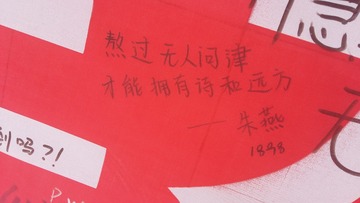 熬过无人问津
才能拥有诗和远方
——朱燕
1838
到吗?!